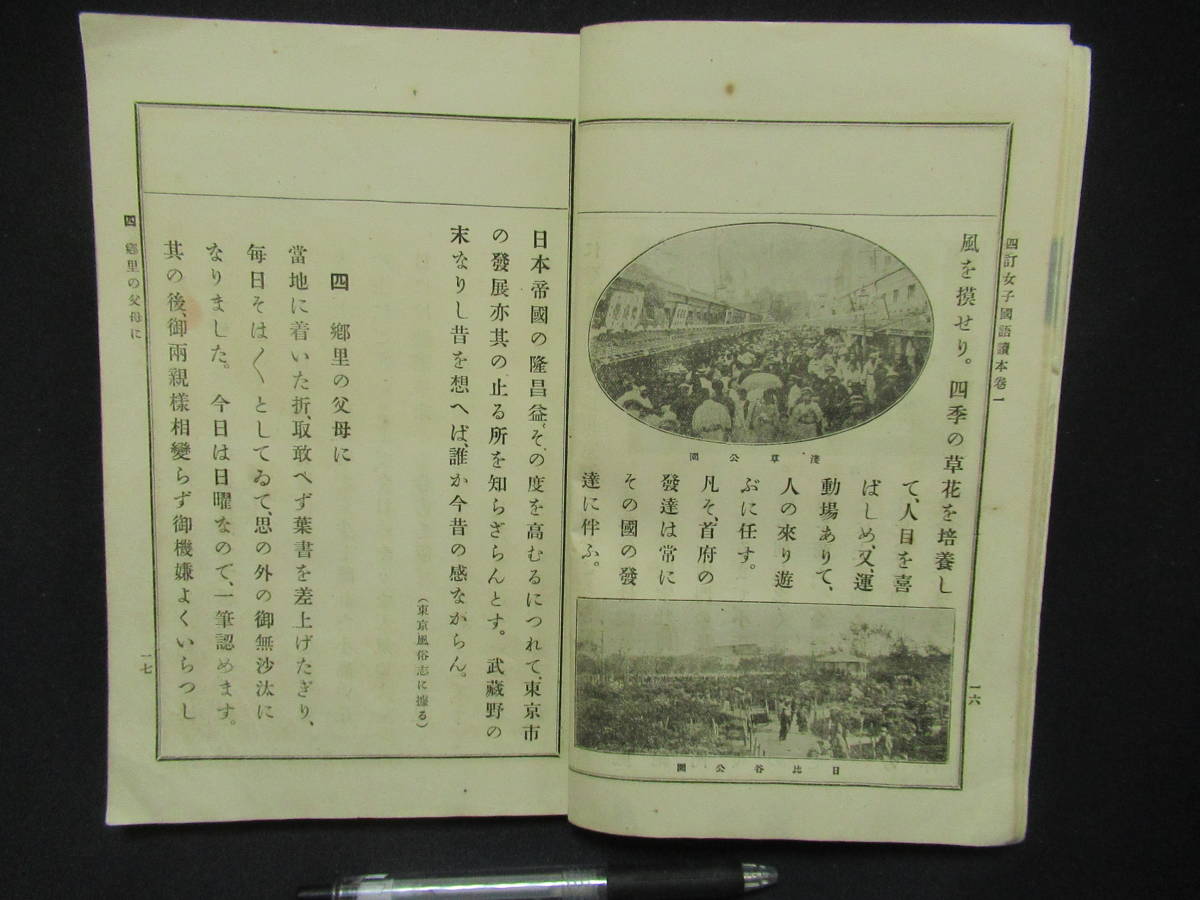 四訂女子國語讀本卷一
風を摸せり。四季の草花を培養し
て、人目を喜
ばしめ、又、運
動場ありて、
人の來り遊
ぶに任す。
凡そ、首府の
發達は常に
その國の發
達に伴ふ。
淺草公園
日比谷公園
一六
日本帝國の隆昌益〻その度を高むるにつれて、東京市
の發展亦其の止る所を知らざらんとす。武藏野の
末なりし昔を想へば、誰か今昔の感なからん。
(東京風俗志に據る)
四 鄕里の父母に
當地に着いた折、取敢へず葉書を差上げたぎり、
每日そは〱としてゐて、思の外の御無沙汰に
なりました。今日は日曜なので、一筆認めます。
其の後、御兩親樣相變らず御機嫌よくいらつし
四 鄕里の父母に
一七